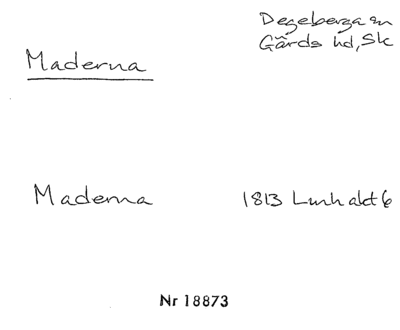 Degeberga sn
Gärds hd, Sk
Maderna
Maderna 1813 Lmh akt 6
Nr 18873